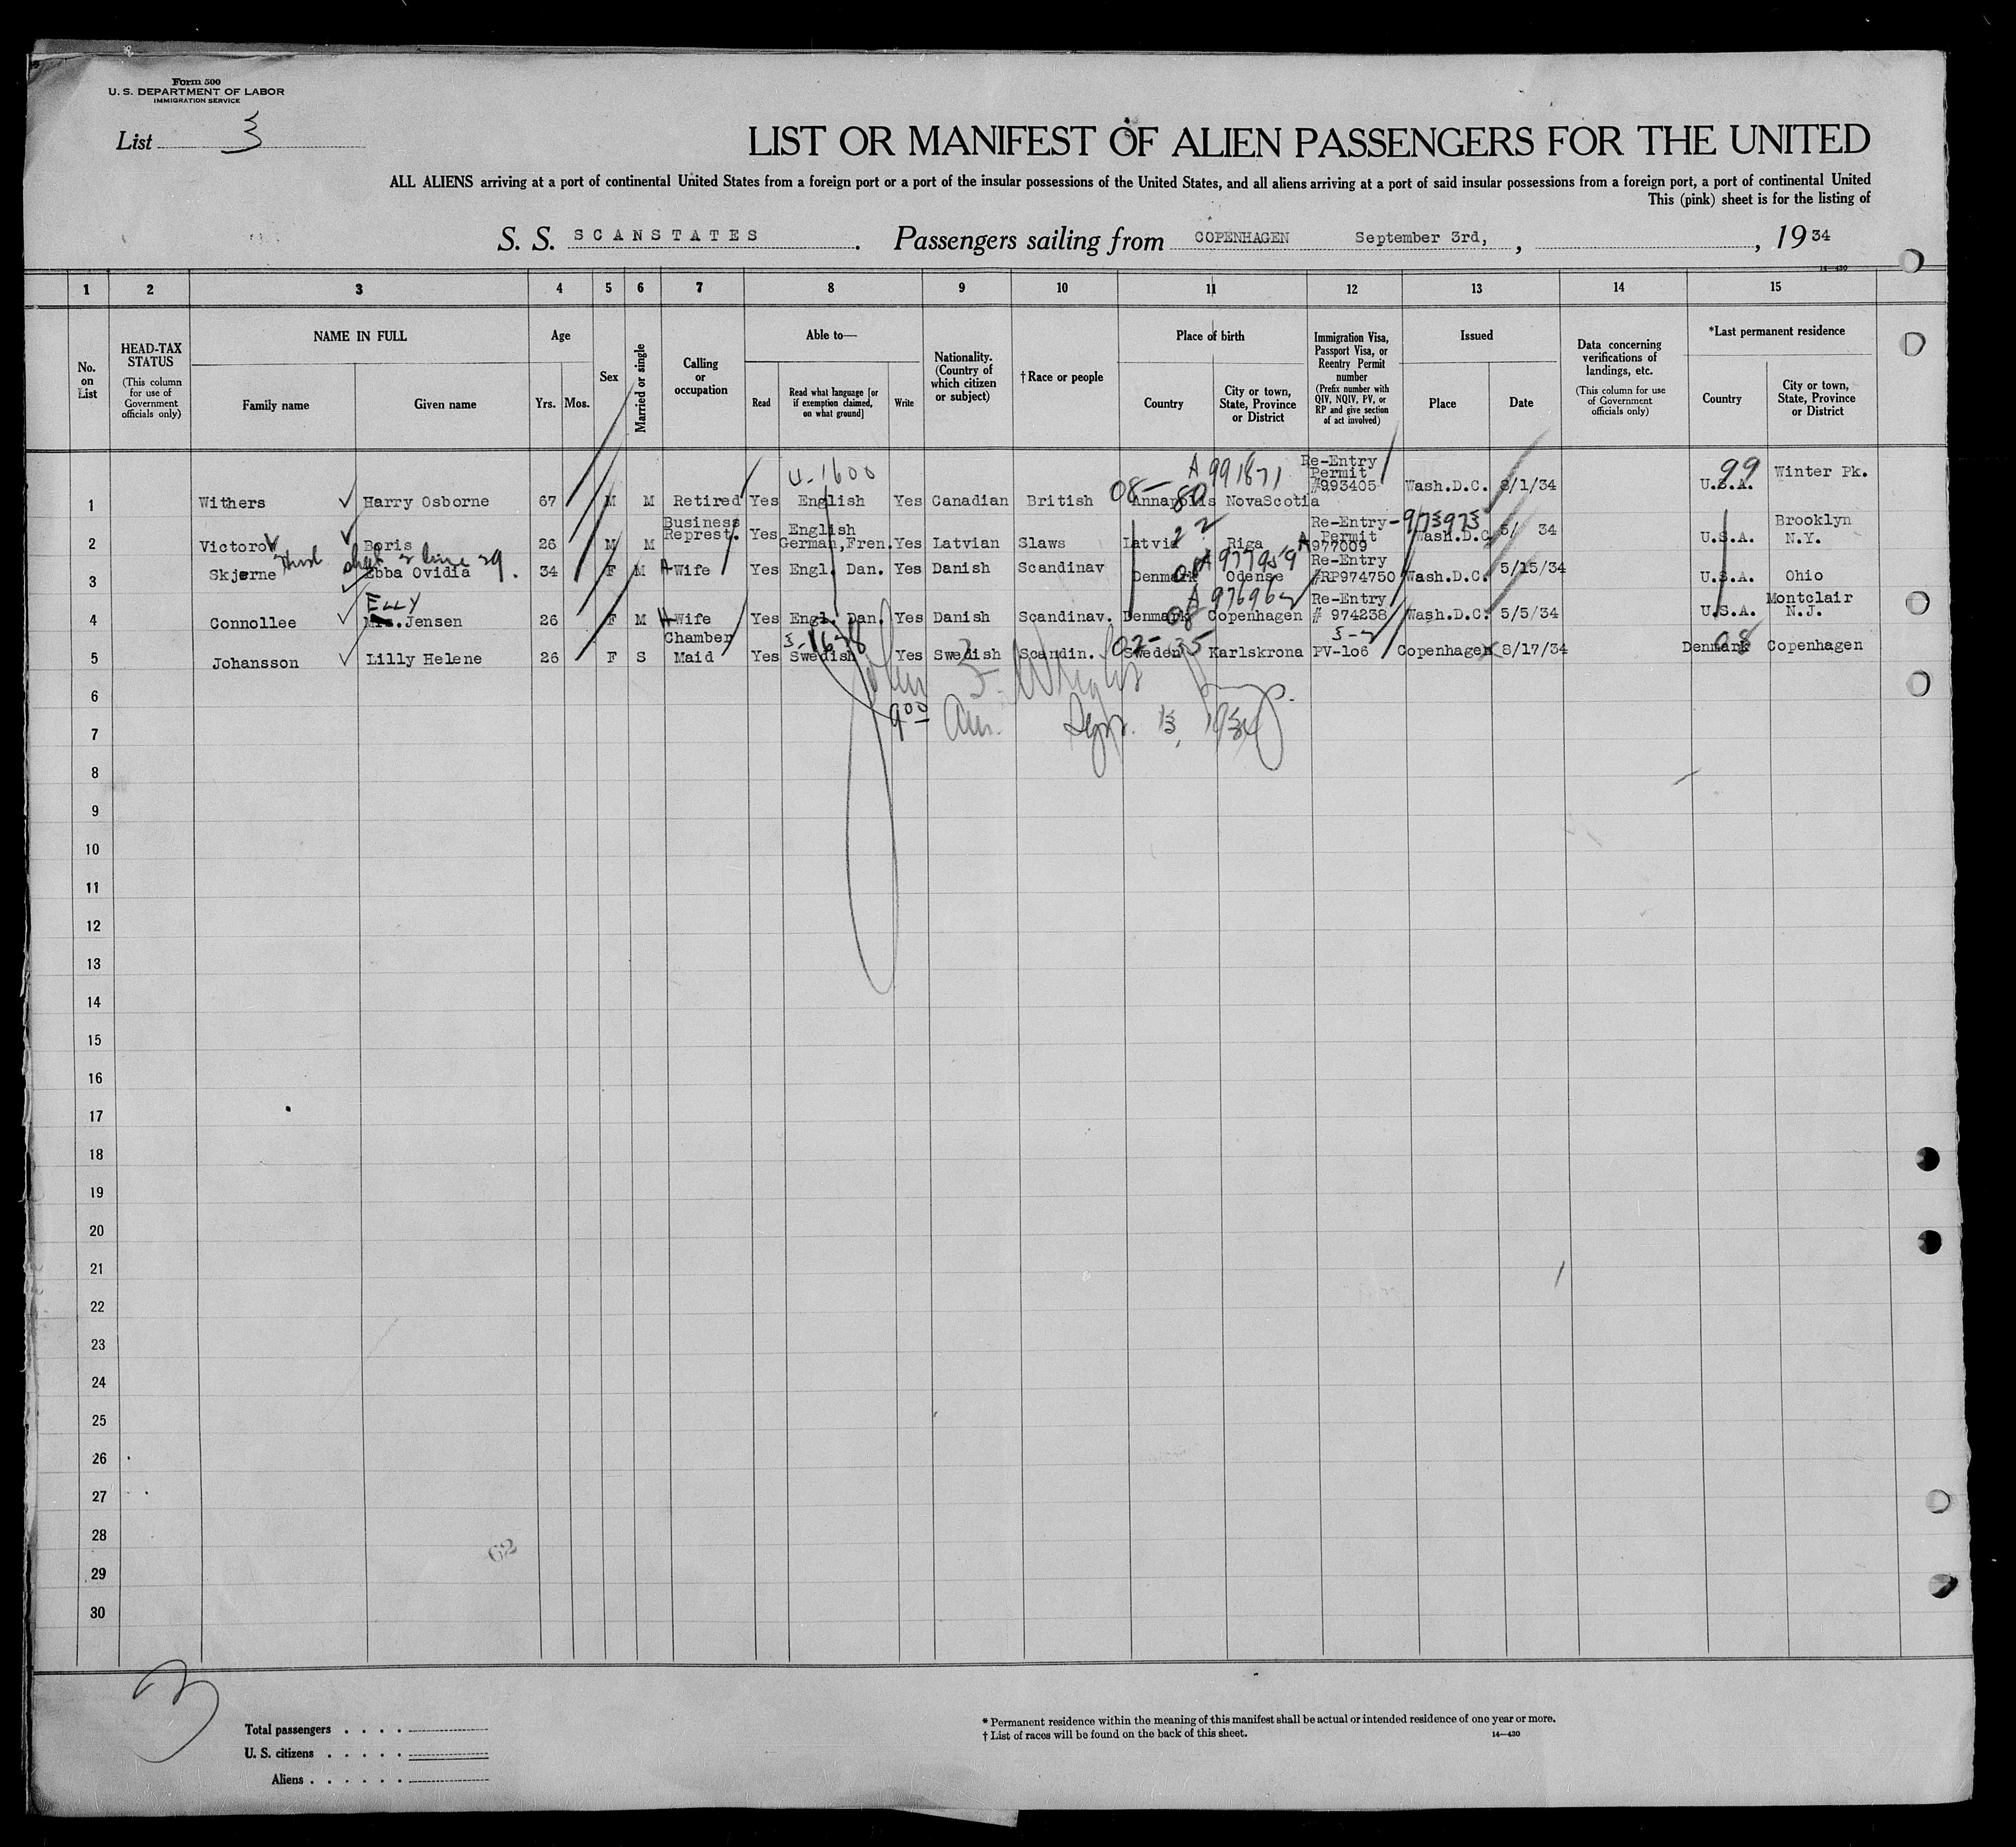 Form 500
U. S. DEPARTMENT OF LABOR
IMMIGRATION SERVICE
List 3
LIST OR MANIFEST OF ALIEN PASSENGERS FOR THE UNITED
ALL ALIENS arriving at a port of continental United States from a foreign port or a port of the insular possessions of the United States, and all aliens arriving at a port of said insular possessions from a foreign port, a port of continental United
This (pink) sheet is for the listing of
S. S. SCANSTATES. Passengers sailing from COPENHAGEN September 3rd, , , 19 34
14—430
1 2 3 4 5 6 7 8 9 10 11 12 13 14 15
No. on List
HEAD-TAX STATUS (This column for use of Government officials only)
NAME IN FULL
Family name Given name
Age
Yrs. Mos.
Sex
Married or single
Calling or occupation
Able to—
Read
Read what language [or if exemption claimed, on what ground]
Write
Nationality. (Country of which citizen or subject)
† Race or people
Place of birth
Country
City or town, State, Province or District
Immigration Visa, Passport Visa, or Reentry Permit number (Prefix number with QIV, NQIV, PV, or RP and give section of act involved)
Issued
Place Date
Data concerning verifications of landings, etc. (This column for use of Government officials only)
*Last permanent residence
Country
City or town, State, Province or District
U-1600 A 991871 99
1 Withers Harry Osborne 67 M M Retired Yes English Yes Canadian British 08- 80 Annapolis NovaScotia Re-Entry Permit #993405 Wash.D.C. 8/1/34 U.S.A. Winter Pk.
2 Victorov Boris 26 M M Business Represt. Yes English German,Fren. Yes Latvian Slaws Latvia 22 Riga Re-Entry Permit A977009 973973 Wash.D.C. 5/ 34 U.S.A. Brooklyn N.Y.
sheet 2 line 29.
3 Skjerne Ebba Ovidia 34 F M H-Wife Yes Engl. Dan. Yes Danish Scandinav Denmark 08 Odense A 977959 Re-Entry #RP974750 Wash.D.C. 5/15/34 U.S.A. Ohio
ELLY A 976962
4 Connollee Mrs. Jensen 26 F M H-Wife Yes Engl. Dan. Yes Danish Scandinav. Denmark 08 Copenhagen Re-Entry # 974238 Wash.D.C. 5/5/34 U.S.A. Montclair N.J.
3-1638 3-2
5 Johansson Lilly Helene 26 F S Chamber Maid Yes Swedish Yes Swedish Scandin. 02-35 Sweden Karlskrona PV-106 Copenhagen 8/17/34 Denmark 08 Copenhagen
John F. Wright Insp.
6
9 00 Am. Sept. 13, 1934
7
8
9
10
11
12
13
14
15
16
17
18
19
20
21
22
23
24
25
26
27
28
29
30
62
3
Total passengers . . . .
U. S. citizens . . . . .
Aliens . . . . . .
* Permanent residence within the meaning of this manifest shall be actual or intended residence of one year or more.
† List of races will be found on the back of this sheet.
14—430